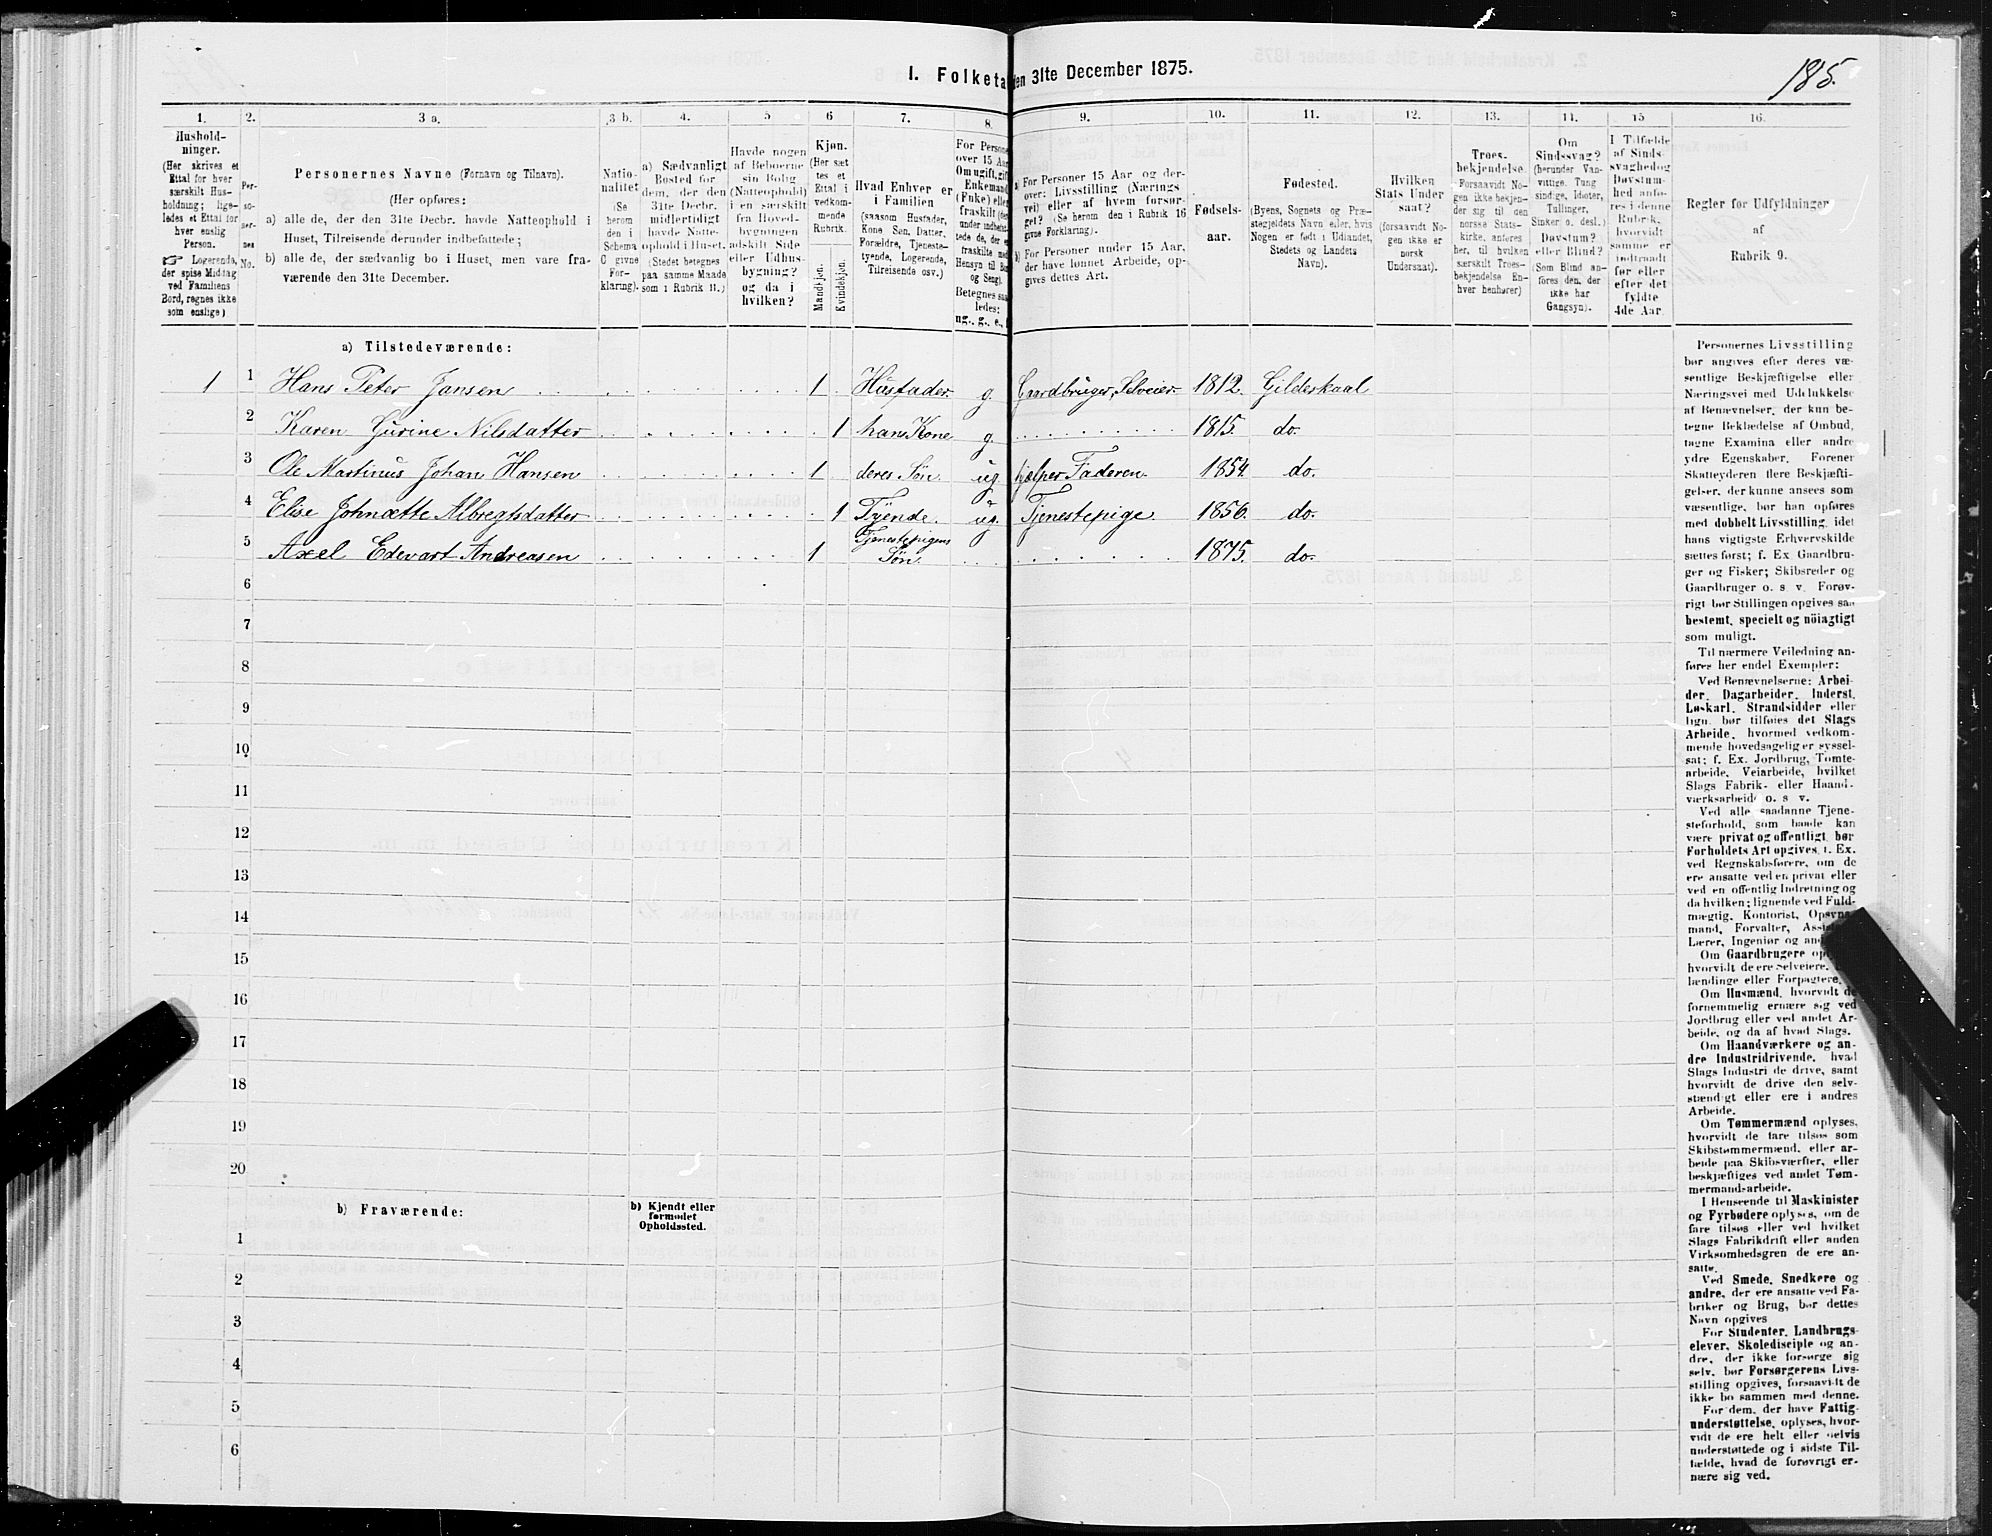 185.
I. Folketa den 31te December 1875.
1. 2. 3 a. 3 b. 4. 5 6 7. 8. 9. 10. 11. 12. 13. 14. 15 16.
Hushold-
ninger.
(Her skrives et
Ettal for hver
særskilt Hus-
holdning; lige-
ledes et Ettal for
hver enslig
Person.
☞ Logerende,
der spise Middag
ved Familiens
Bord, regnes ikke
som enslige)
Per-
so-
ner-
nes
No.
Personernes Navne (Fornavn og Tilnavn).
(Her opføres:
a) alle de, der den 31te Decbr. havde Natteophold i
Huset, Tilreisende derunder indbefattede;
b) alle de, der sædvanlig bo i Huset, men vare fra-
værende den 31te December.
Natio-
nalitet
(Se
herom
den i
Schema
C givne
For-
klaring).
a) Sædvanligt
Bosted for
dem, der den
31te Decbr.
midlertidigt
havde Natte-
ophold i Huset.
(Stedet betegnes
paa samme Maade
som i Rubrik 11.)
Havde nogen
af Beboerne
sin Bolig
(Natteophold)
i en særskilt
fra Hoved-
bygningen
adskilt Side
eller Udhus-
bygning?
og da i
hvilken?
Kjøn.
(Her sæt
tes et
Ettal i
vedkom-
mende
Rubrik.
Mandkjøn.
Kvindekjøn.
Hvad Enhver er
i Familien
(saasom Husfader,
Kone Søn, Datter,
Forældre, Tjeneste-
tyende, Logerende,
Tilreisende osv.)
For Persone
over 15 Aar
Om ugift, gift
Enkemand
(Enke) eller
fraskilt
Betegnes saa
ledes:
ug., g., e.,
a) For Personer 15 Aar og der-
over: Livsstilling (Nærings
vei) eller af hvem forsør-
get? (Se herom den i Rubrik 16
givne Forklaring).
b) For Personer under 15 Aar,
der have lønnet Arbeide, op-
gives dettes Art.
Fødsels-
aar.
Fødested.
(Byens, Sognets og Præ-
stegjeldets Navn eller, hvis
Nogen er født i Udlandet,
Stedets og Landets
Navn).
Hvilken
Stats Under
saat?
(forsaavidt No-
gen ikke er
norsk
Undersaat).
Troes-
bekjendelse.
(Forsaavidt No-
gen ikke bekjen-
der sig til den
norske Stats-
kirke, anføres
her, til hvilken
særskilt Troes-
bekjendelse En-
hver henhører)
Om
Sindssvag?
(herunder Van-
vittige. Tung
sindige, Idioter,
Tullinger,
Sinker o. desl.)
Døvstum?
eller Blind?
(Som Blind an-
føres den, der
ikke har
Gangsyn).
I Tilfælde
af Sinds-
svaghed og
Døvstum-
hed anfø-
res i denne
Rubrik,
hvorvidt
samme er
indtraadt
før eller
efter det
fyldte
4de Aar.
Regler for Udfyldningen
af
Rubrik 9.
a) Tilstedeværende:
1 1 Hans Peter Jansen 1 Husfader g. Gaardbruger, Selveier 1812. Gildeskaal
2 Karen Gurine Nilsdatter 1 hans Kone g. 1815. do.
3 Ole Martinus Johan Hansen 1 deres Søn. ug. hjelper Faderen. 1854. do.
4 Elise Johnætte Albregtsdatter 1 Tyende. ug. Tjenestepige. 1856. do.
5 Axel Edevart Andreasen 1 Tjenestepigens Søn. 1875. do.
6
7
8
9
10
11
12
13
14
15
16
17
18
19
20
b) Fraværende:
b) Kjendt eller
formodet
Opholdssted.
1
2
3
4
5
6
Personernes Livsstilling
bør angives efter deres væ-
sentlige Beskjæftigelse eller
Næringsvei med Udelukkelse
af Benævnelser, der kun be-
tegne Beklædelse af Ombud,
tagne Examina eller andre
ydre Egenskaber. Forener
Skatteyderen flere Beskjæfti-
gelser, der kunne ansees som
væsentlige, bør han opføres
med dobbelt Livsstilling, idet
hans vigtigste Erhvervskilde
sættes først; f. Ex Gaardbru-
ger og Fisker; Skibsreder og
Gaardbruger o. s v. Forøv-
rigt bør Stillingen opgives saa
bestemt, specielt og nöiagtigt
som muligt.
Til nærmere Veiledning an-
føres her endel Exempler:
Ved Benævnelserne: Arbei-
der, Dagarbeider, Inderst,
Løskarl, Strandsidder eller
lign. bør tilføies det Slags
Arbeide, hvormed vedkom-
mende hovedsagelig er syssel-
sat; f. Ex. Jordbrug, Tomte-
arbeide, Veiarbeide, hvilket
Slags Fabrik- eller Haand-
værksarbeide o. s v.
Ved alle saadanne Tjene-
steforhold, som baade kan
være privat og offentligt, bør
Forholdets Art opgives, f. Ex.
ved Regnskabsførere, om de
ere ansatte ved en privat eller
ved en offentlig Indretning og
da hvilken; lignende ved Fuld-
mægtig, Kontorist, Opsyns-
mand, Forvalter,
Lærer, Ingeniør og
Om Gaardbrugere
hvorvidt de ere Selveiere,
lændinge eller Forpagtere.
Om Husmænd, hvorvidt de
fornemmelig ernære sig ved
Jordbrug eller ved andet Ar-
beide, og da af hvad Slags.
Om Haandværkere og an-
dre Industridrivende, hvad
Slags Industri de drive, samt
hvorvidt de drive den selv-
stændigt eller ere i andres
Arbeide.
Om Tømmermænd oplyses,
hvorvidt de fare tilsøs som
Skibstømmermænd, eller ar-
beide paa Skibsværfter, eller
beskjæftiges ved andet Tøm-
mermandsarbeide.
I Henseende til Maskinister
og Fyrbødere oplyses, om de
fare tilsøs eller ved hvilket
Slags Fabrikdrift eller anden
Virksomhedsgren de ere an-
satte.
Ved Smede, Snedkere og
andre, der ere ansatte ved Fa-
briker og Brug, bør dettes
Navn opgives
For Studenter, Landbrugs-
elever, Skoledisciple og an-
dre, der ikke forsørge sig
selv, bør Forsørgerens Livs-
stilling opgives, forsaavidt de
ikke bo sammen med denne.
For dem, der have Fattig-
understøttelse, oplyses, hvor-
vidt de ere helt eller delvis
understøttede og i sidste Til-
fælde, hvad de forøvrigt er-
nære sig ved.